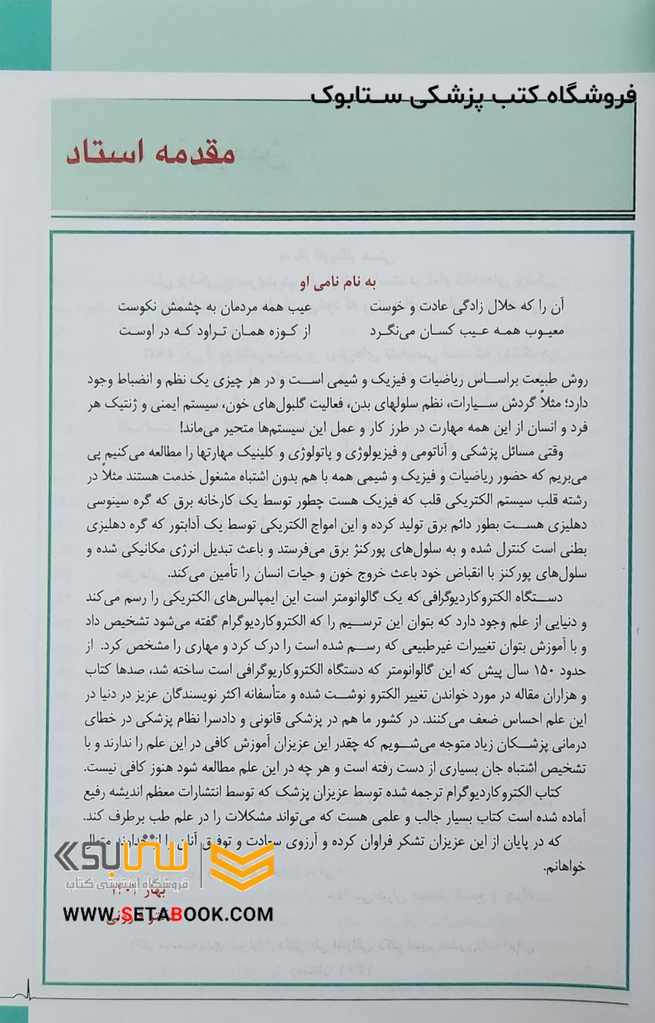 فروشگاه کتب پزشکی ستابوک
مقدمه استاد
به نام نامی او
آن را که حلال زادگی عادت و خوست عیب همه مردمان به چشمش نکوست
معیوب همه عیب کسان می‌نگرد از کوزه همان تراود که در اوست
روش طبیعت براساس ریاضیات و فیزیک و شیمی است و در هر چیزی یک نظم و انضباط وجود
دارد؛ مثلاً گردش سیارات، نظم سلولهای بدن، فعالیت گلبول‌های خون، سیستم ایمنی و ژنتیک هر
فرد و انسان از این همه مهارت در طرز کار و عمل این سیستم‌ها متحیر می‌ماند!
وقتی مسائل پزشکی و آناتومی و فیزیولوژی و پاتولوژی و کلینیک مهارتها را مطالعه می‌کنیم پی
می‌بریم که حضور ریاضیات و فیزیک و شیمی همه با هم بدون اشتباه مشغول خدمت هستند مثلاً در
رشته قلب سیستم الکتریکی قلب که فیزیک هست چطور توسط یک کارخانه برق که گره سینوسی
دهلیزی هست بطور دائم برق تولید کرده و این امواج الکتریکی توسط یک آدابتور که گره دهلیزی
بطنی است کنترل شده و به سلول‌های پورکنژ برق می‌فرستد و باعث تبدیل انرژی مکانیکی شده و
سلول‌های پورکنز با انقباض خود باعث خروج خون و حیات انسان را تأمین می‌کند.
دستگاه الکتروکاردیوگرافی که یک گالوانومتر است این ایمپالس‌های الکتریکی را رسم می‌کند
و دنیایی از علم وجود دارد که بتوان این ترسیم را که الکتروکاردیوگرام گفته می‌شود تشخیص داد
و با آموزش بتوان تغییرات غیرطبیعی که رسم شده است را درک کرد و مهاری را مشخص کرد. از
حدود ۱۵۰ سال پیش که این گالوانومتر که دستگاه الکتروکاریوگرافی است ساخته شد، صدها کتاب
و هزاران مقاله در مورد خواندن تغییر الکترو نوشت شده و متأسفانه اکثر نویسندگان عزیز در دنیا در
این علم احساس ضعف می‌کنند. در کشور ما هم در پزشکی قانونی و دادسرا نظام پزشکی در خطای
درمانی پزشکان زیاد متوجه می‌شویم که چقدر این عزیزان آموزش کافی در این علم را ندارند و با
تشخیص اشتباه جان بسیاری از دست رفته است و هر چه در این علم مطالعه شود هنوز کافی نیست.
کتاب الکتروکاردیوگرام ترجمه شده توسط عزیزان پزشک که توسط انتشارات معظم اندیشه رفیع
آماده شده است کتاب بسیار جالب و علمی هست که می‌تواند مشکلات را در علم طب برطرف کند.
که در پایان از این عزیزان تشکر فراوان کرده و آرزوی سعادت و توفیق آنان را از خداوند متعال
خواهانم.
ستابوک
فروشگاه اینترنتی کتاب
بهار
WWW.SETABOOK.COM